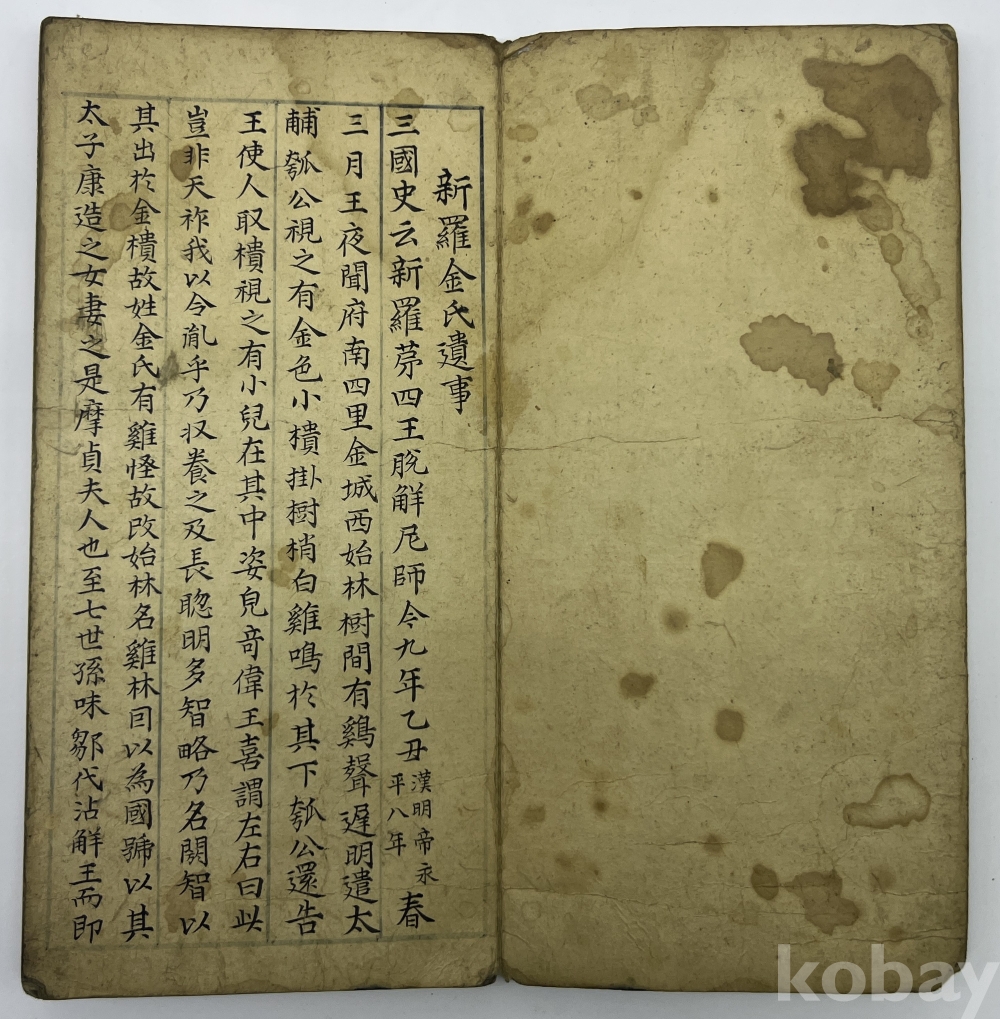 新羅金氏遺事
三國史云新羅苐四王脫解尼師今九年乙丑漢明帝永平八年春
三月王夜聞府南四里金城西始林樹間有鷄聲遅明遣太
輔瓠公視之有金色小樻掛樹梢白雞鳴於其下瓠公還告
王使人取樻視之有小兒在其中姿皃竒偉王喜謂左右曰此
豈非天祚我以令胤乎乃収養之及長聦明多智略乃名閼智以
其出於金樻故姓金氏有雞怪故改始林名雞林因以為國號以其
太子康造之女妻之是摩貞夫人也至七世孫味鄒代沾解王而即
kobay